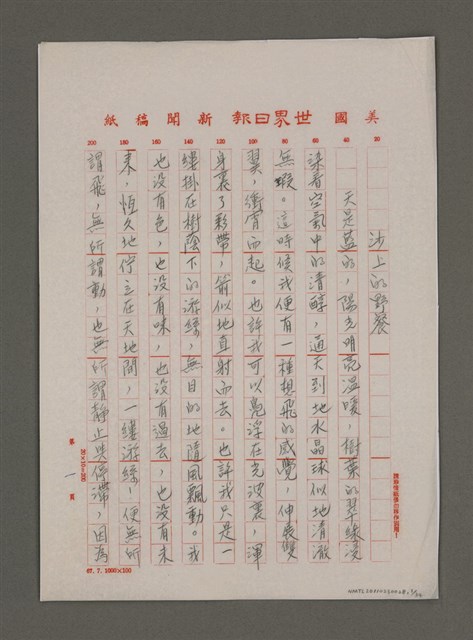 美國世界日報新聞稿紙
20
40
60
80
100
120
140
160
180
200
沙上的野餐
天是藍的，陽光明亮溫暖，樹葉的翠綠浸
染着空氣中的清醇，通天到地水晶球似地清澈
無蝦。這時候我便有一種想飛的感覺，伸展雙
翼，衝霄而起。也許我可以亮浮在光波裏，渾
身裹了彩帶，箭似地直射而去。也許我只是一
縷掛在樹蔭下的游絲，無目的地隨風飄動。我
也没有色，也没有味，也没有過去，也没有未
來，恆久地停立在天地間，一縷游絲，便無所
謂飛，無所謂動，也無所謂靜止與停滯，因為
第一頁
20×10=200
67. 7. 1000×100